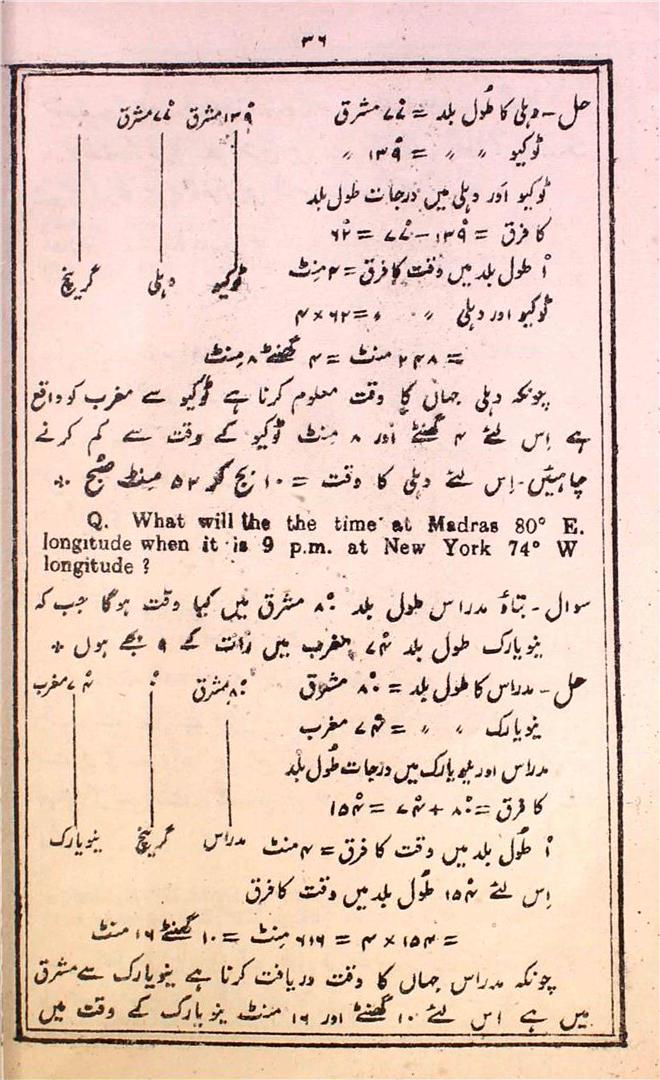 ۳۶
حل - دہلی کا طُول بلد = ۷۷° مشرق
ٹوکیو 〃 〃 = ۱۳۹° 〃
ٹوکیو اور دہلی میں درجات طول بلد
کا فرق = ۱۳۹° - ۷۷° = ۶۲°
۱° طول بلد میں وقت کا فرق = ۴ منٹ
ٹوکیو اور دہلی 〃 〃 = ۶۲ × ۴
= ۲۴۸ منٹ = ۴ گھنٹے ۸ منٹ
۱۳۹° مشرق ۷۷° مشرق ۰°
ٹوکیو دہلی گرینچ
چونکہ دہلی جہاں کا وقت معلوم کرنا ہے ٹوکیو سے مغرب کو واقع
ہے اِس لئے ۴ گھنٹے اور ۸ منٹ ٹوکیو کے وقت سے کم کرنے
چاہئیں - اِس لئے دہلی کا وقت = ۱۰ بج کر ۵۲ منٹ صبح *
Q. What will the the time at Madras 80° E.
longitude when it is 9 p.m. at New York 74° W
longitude ?
سوال - بتاؤ مدراس طول بلد ۸۰° مشرق میں کیا وقت ہوگا جب کہ
نیویارک طول بلد ۷۴° مغرب میں رات کے ۹ بجے ہوں *
حل - مدراس کا طُول بلد = ۸۰° مشرق
نیویارک 〃 〃 = ۷۴° مغرب
مدراس اور نیویارک میں درجات طُول بلد
کا فرق = ۸۰° + ۷۴° = ۱۵۴°
۱° طُول بلد میں وقت کا فرق = ۴ منٹ
۸۰° مشرق ۰° ۷۴° مغرب
مدراس گرینچ نیویارک
اِس لئے ۱۵۴° طُول بلد میں وقت کا فرق
= ۱۵۴ × ۴ = ۶۱۶ منٹ = ۱۰ گھنٹے ۱۶ منٹ
چونکہ مدراس جہاں کا وقت دریافت کرنا ہے نیویارک سے مشرق
میں ہے اس لئے ۱۰ گھنٹے اور ۱۶ منٹ نیویارک کے وقت میں